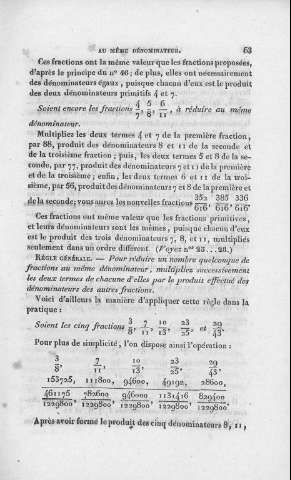 AU MÊME DÉNOMINATEUR. 63
Ces fractions ont la même valeur que les fractions proposées,
d'après le principe du n° 46; de plus, elles ont nécessairement
des dénominateurs égaux, puisque chacun d'eux est le produit
des deux dénominateurs primitifs 4 et 7.
Soient encore les fractions 4/7, 5/8, 6/11, à réduire au même
dénominateur.
Multipliez les deux termes 4 et 7 de la première fraction,
par 88, produit des dénominateurs 8 et 11 de la seconde et
de la troisième fraction; puis, les deux termes 5 et 8 de la se-
conde, par 77, produit des dénominateurs 7 et 11 de la première
et de la troisième; enfin, les deux termes 6 et 11 de la troi-
sième, par 56, produit des dénominateurs 7 et 8 de la première et
de la seconde; vous aurez les nouvelles fractions 352/616, 385/616, 336/616.
Ces fractions ont même valeur que les fractions primitives,
et leurs dénominateurs sont les mêmes, puisque chacun d'eux
est le produit des trois dénominateurs 7, 8, et 11, multipliés
seulement dans un ordre différent. (Voyez nos 25...28.)
RÈGLE GÉNÉRALE. — Pour réduire un nombre quelconque de
fractions au même dénominateur, multipliez successivement
les deux termes de chacune d'elles par le produit effectué des
dénominateurs des autres fractions.
Voici d'ailleurs la manière d'appliquer cette règle dans la
pratique :
Soient les cinq fractions 3/8, 7/11, 10/13, 23/25, et 29/43.
Pour plus de simplicité, l'on dispose ainsi l'opération :
3/8, 7/11, 10/13, 23/25, 29/43.
153725, 111800, 94600, 49192, 28600,
461175/1229800, 782600/1229800, 946000/1229800, 1131416/1229800, 829400/1229800.
Après avoir formé le produit des cinq dénominateurs 8, 11,